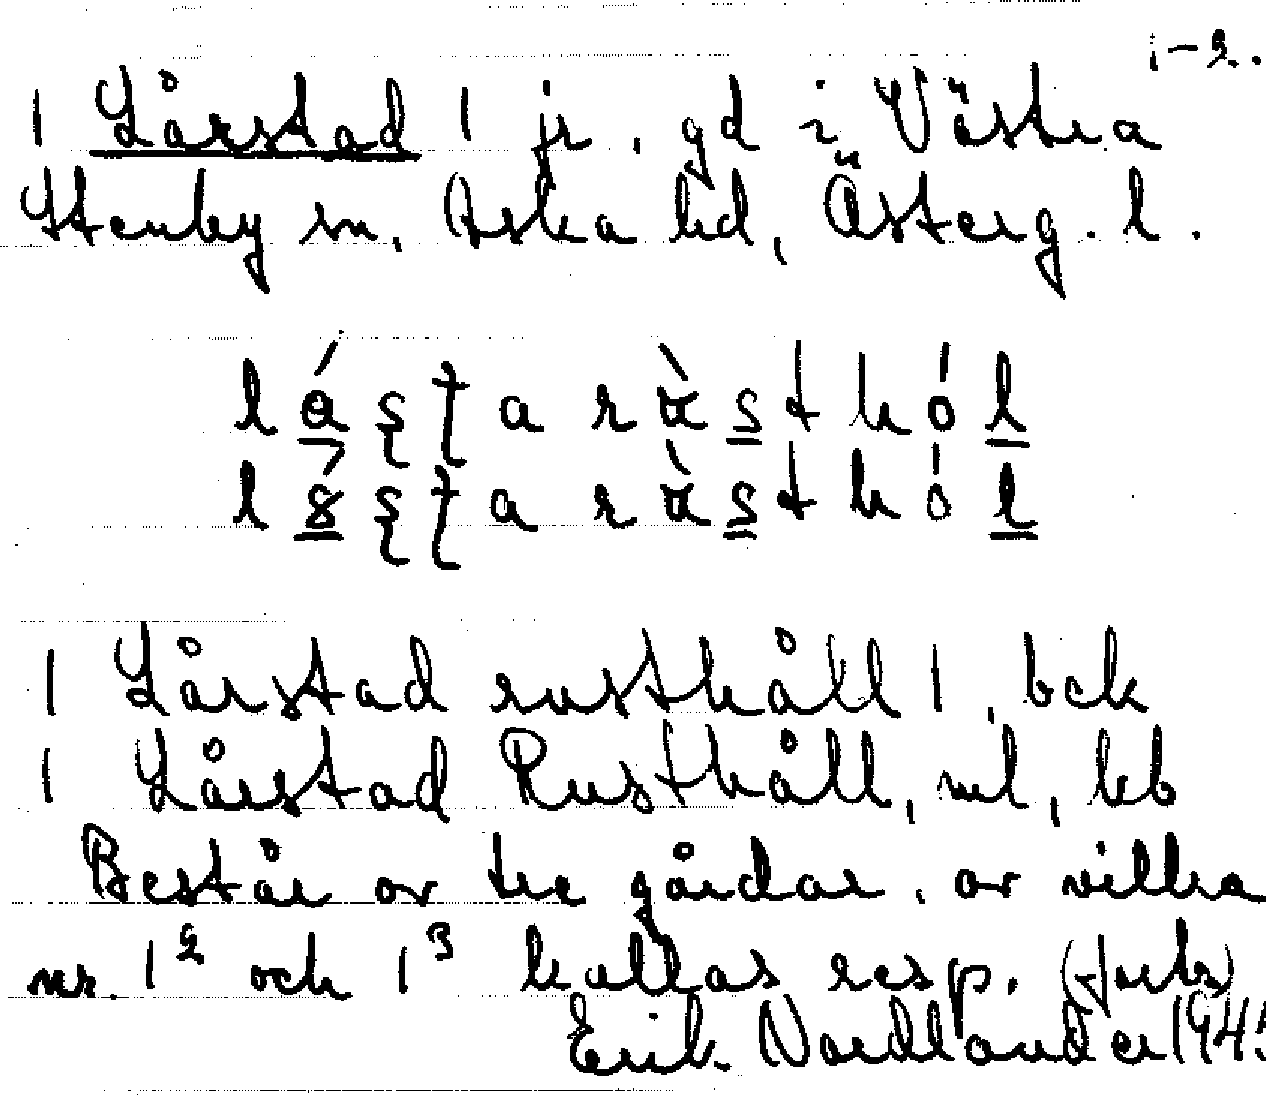 1-2.
1 Lårstad 1 jr, gd i Västra
Stenby sn, Aska hd, Österg. l.
1 Lårstad rusthåll 1, bek
1 Lårstad Rusthåll, ml, kb
Består av tre gårdar, av vilka
nr. 1² och 1³ kallas resp. (forts)
Erik Nordlander 194